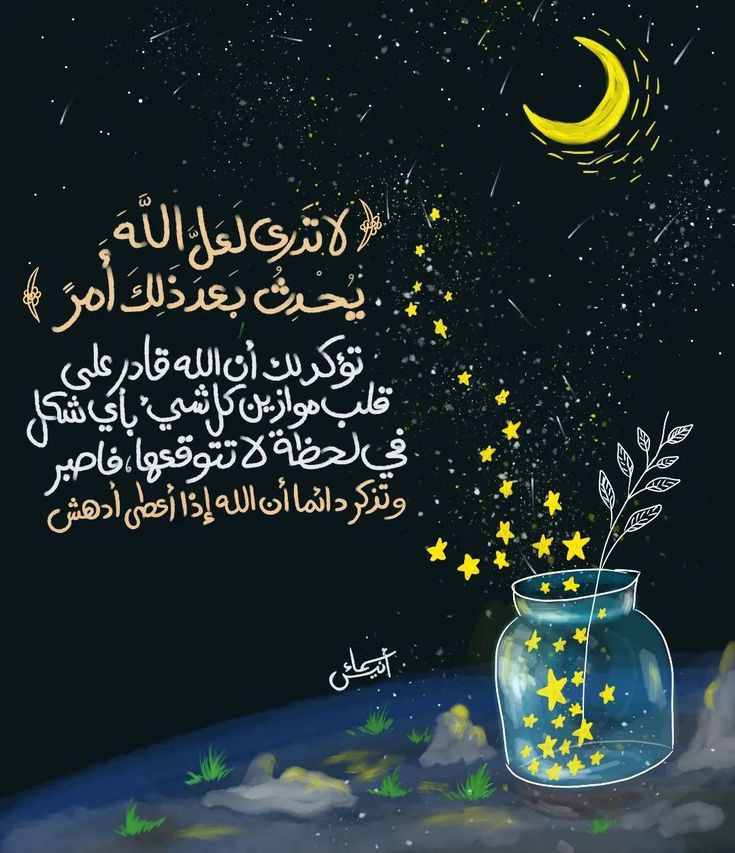 ﴿ لا تَدرى لَعَلَّ اللَّهَ
يُحْدِثُ بَعدَ ذَلِكَ أَمرً ﴾
تؤكد لك أن الله قادر على
قلب موازين كل شيء بأي شكل
في لحظة لا تتوقعها، فاصبر
وتذكر دائما أن الله إذا أعطى أدهش